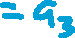 = a₃